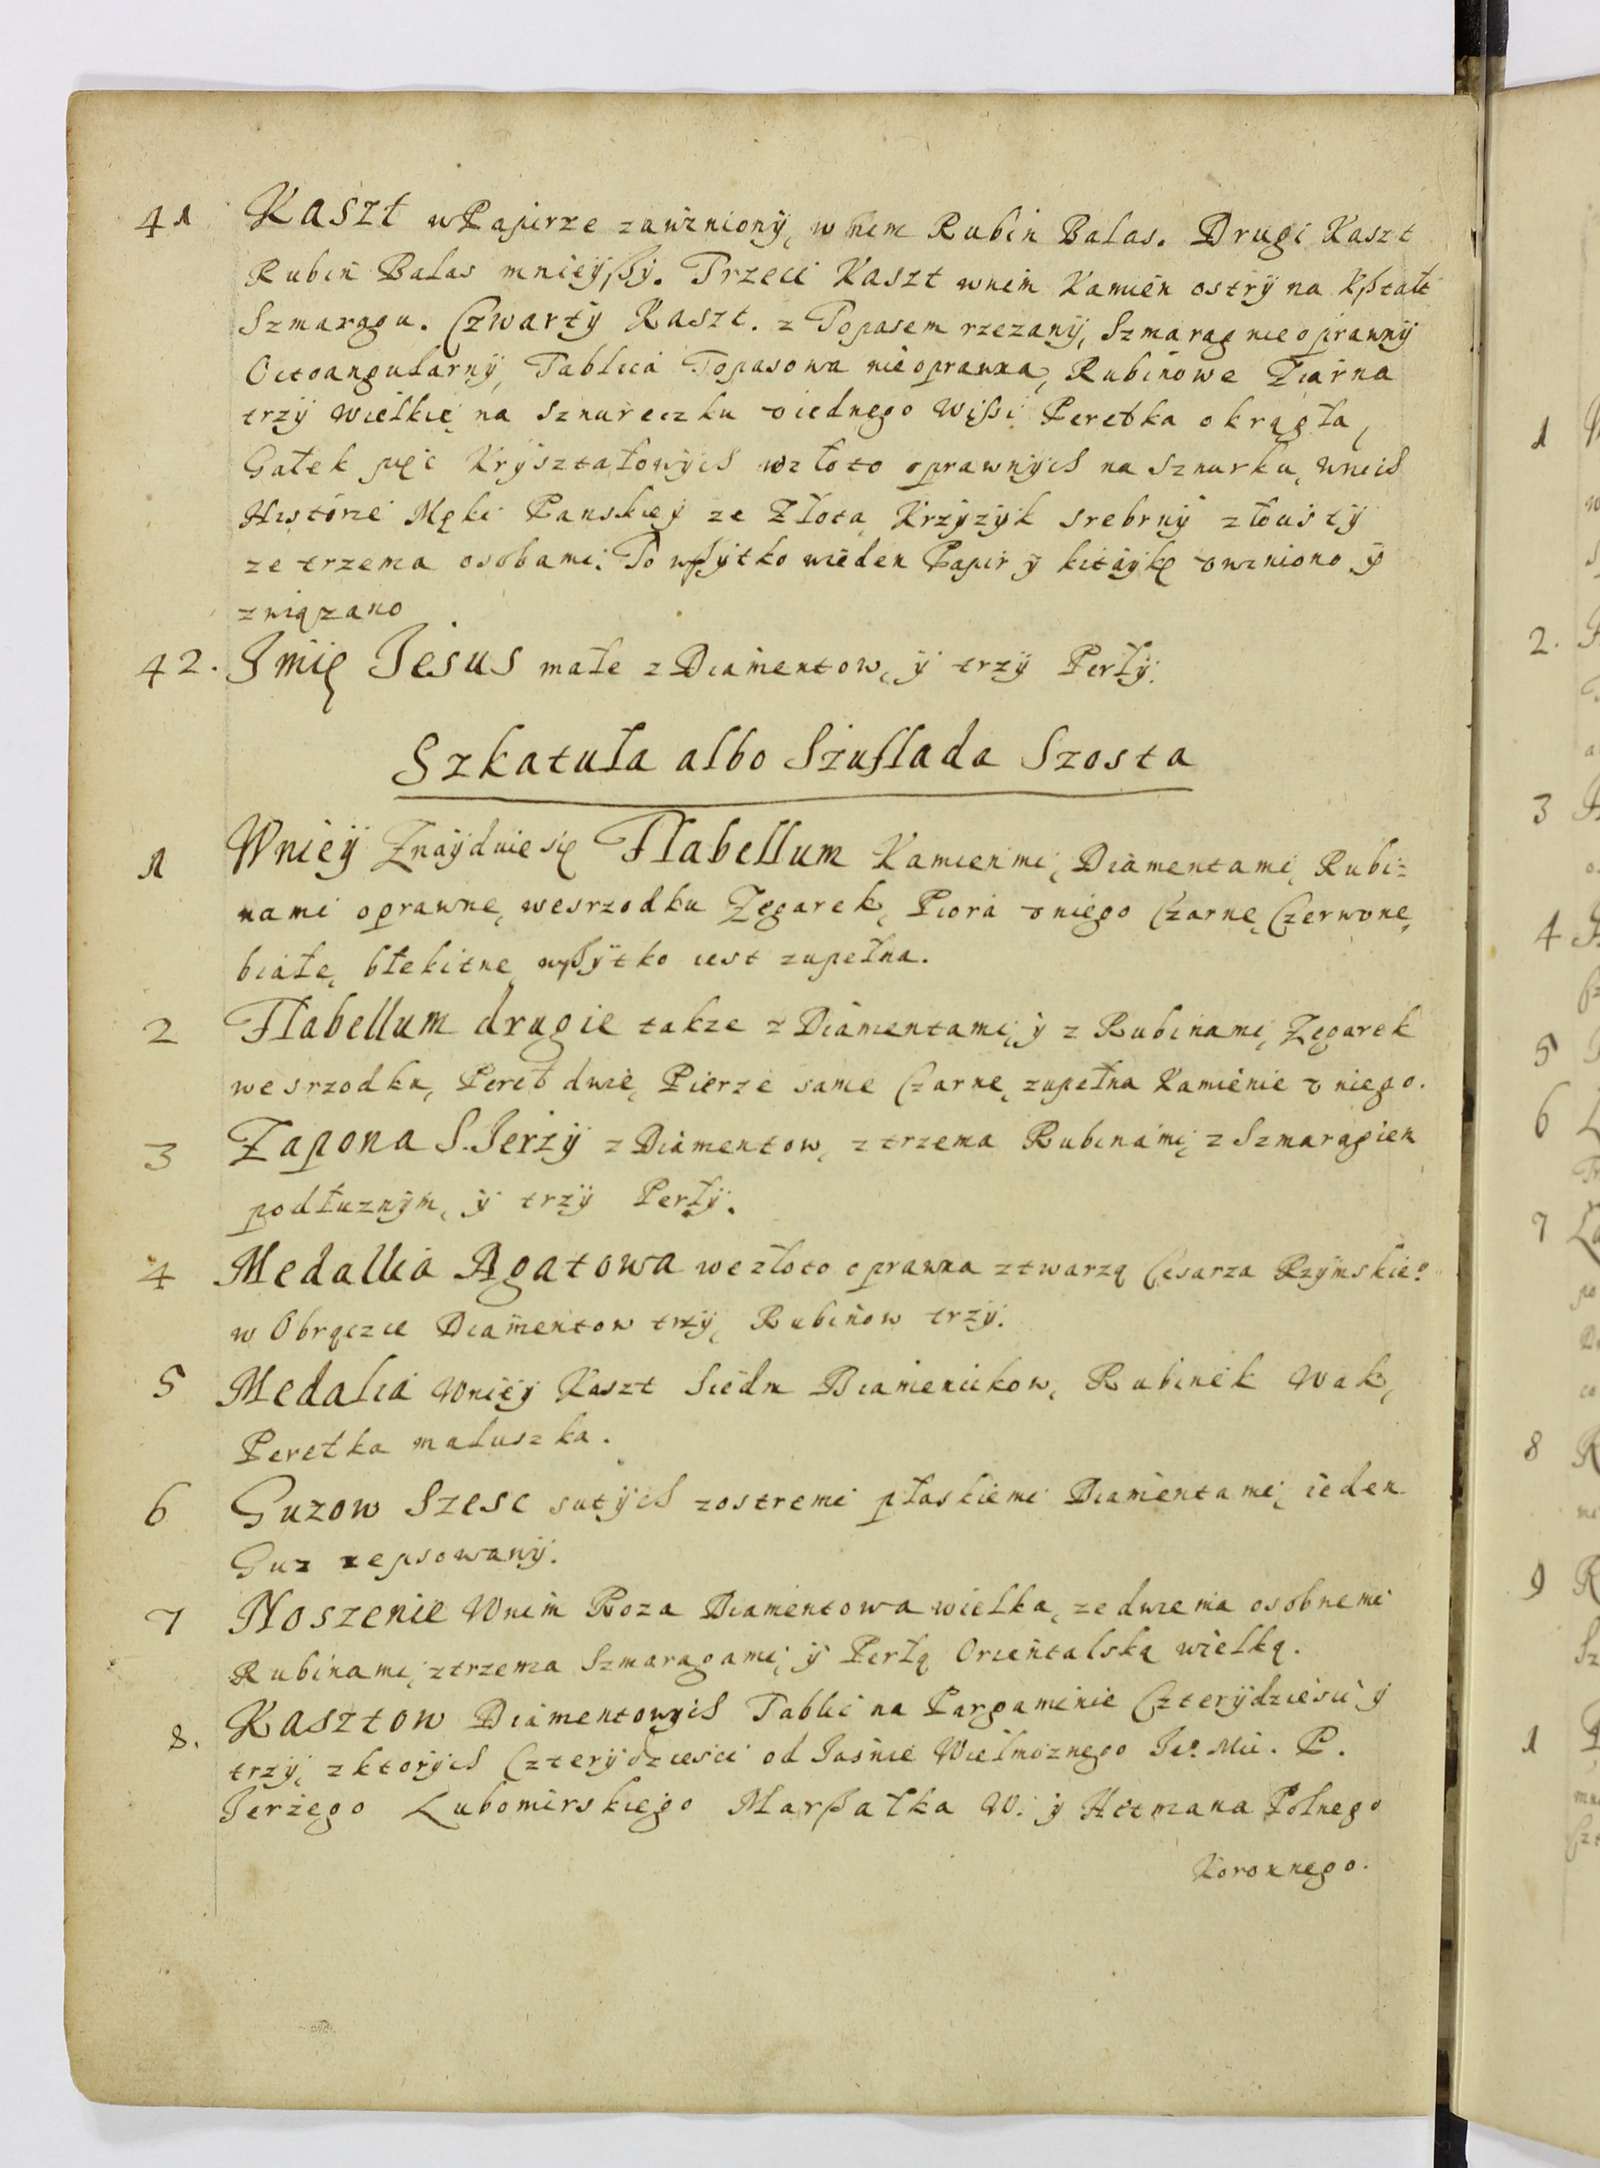 41 Kaszt w Papirze zawiniony, w nim Rubin Balas. Drugi Kaszt
Rubin Balas mnieyßy. Trzeci Kaszt wnim Kamien ostry na kßtałt
Szmaragu. Czwarty Kaszt. z Topasem rzezany, Szmarag nieoprawny
Octoangularny, Tablica Topasowa nieoprawna, Rubinowe Ziarna
trzy wielkie na sznureczku v iednego wisi Perełka okrągła,
Gałek pięc Kryształowych wzłoto oprawnych na sznurku, wnich
Historie Męki Panskiey ze Złota, Krzyzyk srebrny złocisty
ze trzema osobami: To wßytko wieden Papir y kitaykę owiniono y
związano
42. Imię Jesus małe z Diamentow, y trzy Perły.
Szkatuła albo Szuflada Szosta
1 Wniey Znayduie się Flabellum Kamienmi, Diamentami, Rubi=
nami oprawne, wesrzodku Zegarek, Piora v niego Czarne, Czerwone,
białe, błekitne, wßytko iest zupełna.
2 Flabellum drugie takze z Diamentami, y z Rubinami, Zegarek
we srzodku, Pereł dwie, Pierze same Czarne, zupełna Kamienie v niego.
3 Zapona S. Jerzy z Diamentow, z trzema Rubinami, z Szmaragiem
podłuznym, y trzy Perły.
4 Medallia Agatowa we złoto oprawna z twarzą Cesarza Rzymskieo
w Obrączce Diamentow trzy, Rubinow trzy.
5 Medalia wniey Kaszt Siedm Diamencikow, Rubinek Wak,
Perełka małuszka.
6 Guzow Szesc sutych zostremi płaskiemi Diamentami, ieden
Guz zepsowany.
7 Noszenie Wnim Roza Diamentowa wielka, ze dwiema osobnemi
Rubinami, ztrzema Szmaragami, y Perłą Orientalską wielką.
8. Kasztow Diamentowych Tablic na Pargaminie Czterydziesci y
trzy, z ktorych Czterydziesci od Jasnie Wielmoznego Jeo. Mci. P.
Jerzego Lubomirskiego Marßałka W. y Hetmana Polnego
Koronnego.
1
2.
3
4
5
6
7
8
9
1